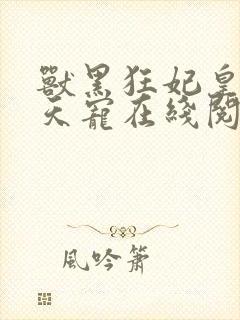 獸黑狂妃皇
天寵在綫閱
風吟簫